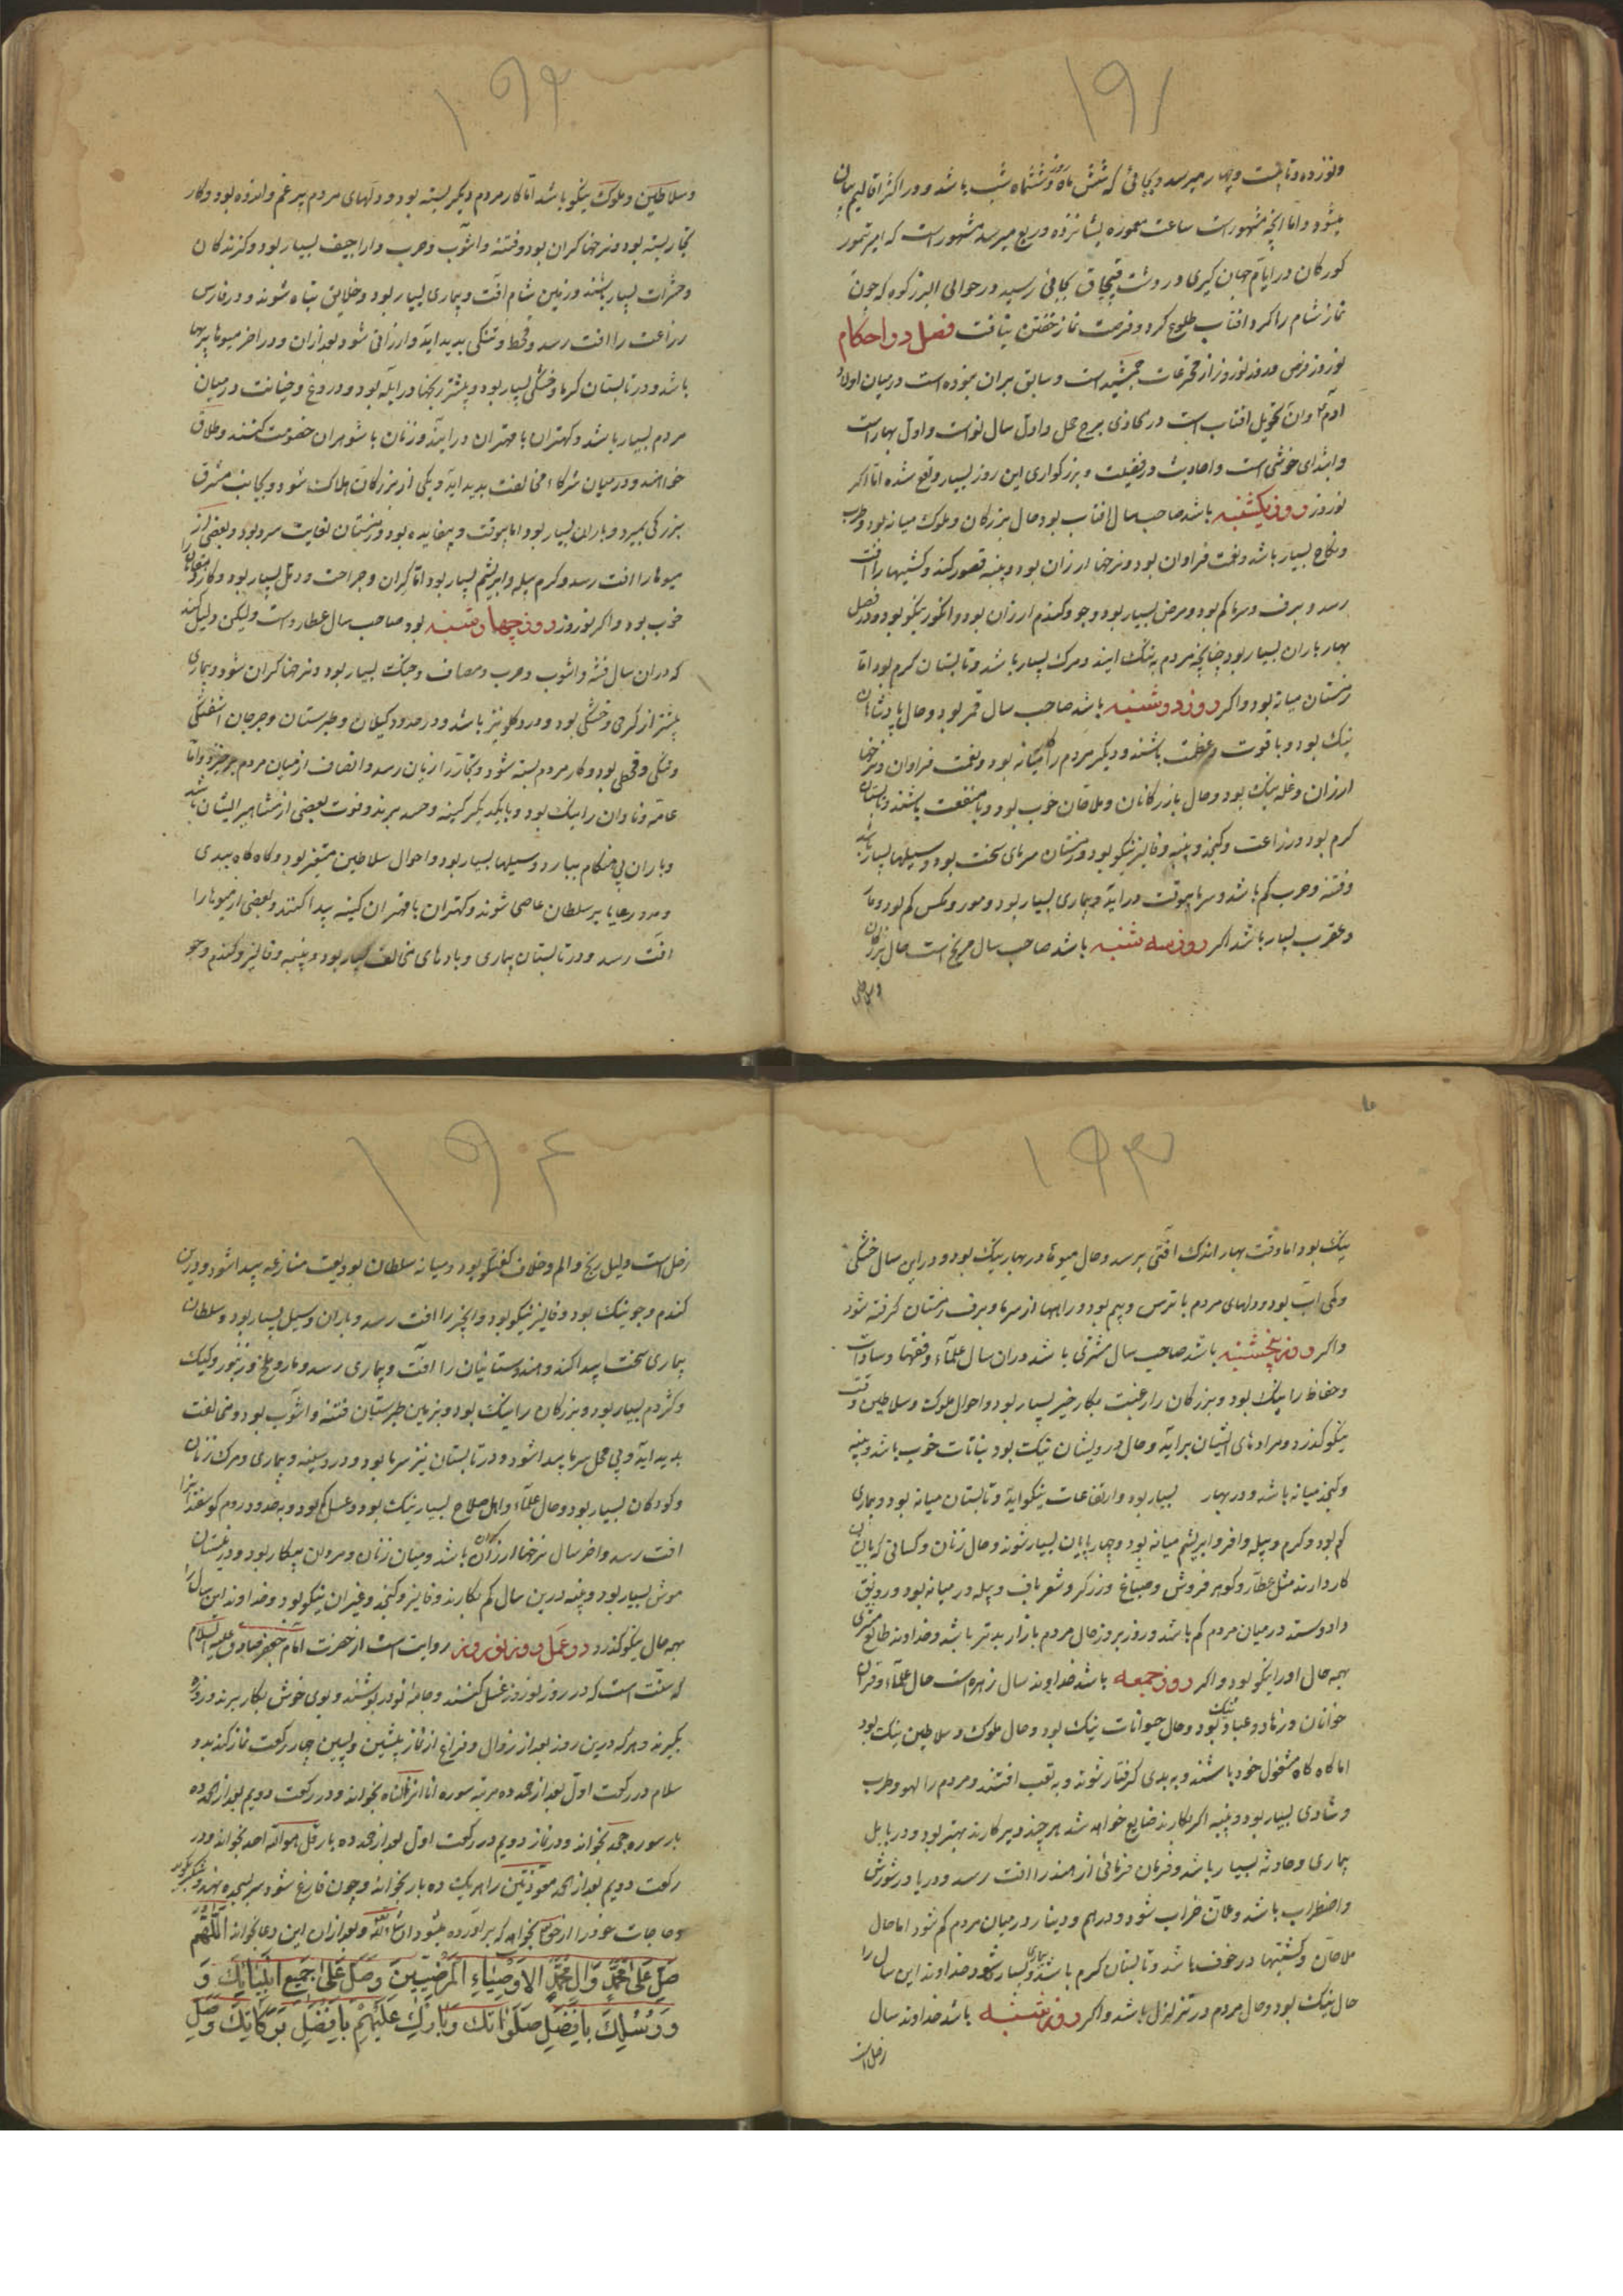 ۱۹۱
ونوزده و تا بیست و چهار میرسد و بجائی که شش ماه روز و ششماه شب باشد و در اکثر اقالیم بیان
میشود و اما آنچه مشهور است ساعت معموره بشانزده و ربع میرسد مشهور است که امیر تیمور
کورکان در ایام جهان کیری در دشت قبچاق بجائی رسید در حوالی البرز کوه که چون
نماز شام را کرد افتاب طلوع کرد و فرصت نماز خفتن نیافت فصل در احکام
نوروز نوروز از مخترعات جمشید است و سابق بران نبوده است در میان اولاد
آدم و ان تحویل افتاب است در محاذی برج حمل و اول سال نو است و اول بهار است
و ابتدای خوشی است و احادیث در فضیلت و بزرکواری این روز بسیار واقع شده اما اکر
نوروز روز یکشنبه باشد صاحب سال افتاب بود حال بزرکان و ملوک میانه بود و طرب
و نکاح بسیار باشد و نعمت فراوان بود و نرخها ارزان بود و پنبه قصور کند و کشتیها را افت
رسد و برف و سرما کم بود و مرض بسیار بود و جو و کندم ارزان بود و انکور نیکو بود و در فصل
بهار باران بسیار بود چنانچه مردم به تنک ایند و مرک بسیار باشد و تابستان کرم بود اما
زمستان میانه بود و اکر روز دوشنبه باشد صاحب سال قمر بود و حال پادشاهان
نیک بود و با قوت و عظمت باشند و دیکر مردم را میانه بود و نعمت فراوان و نرخها
ارزان و غله نیک بود و حال بازرکانان و ملاحان خوب بود و با منفعت باشند و تابستان
کرم بود و زراعت و کنجد و پنبه و فالیز نیکو بود و زمستان سرمای سخت بود و سیلها بسیار باشد
و فتنه و حرب کم باشد و سرما بیوقت در اید و بیماری بسیار بود و مور و مکس کم بود و مار
و عقرب بسیار باشد اکر روز سه شنبه باشد صاحب سال مریخ است حال بزرکان
۱۹۲
و سلاطین و ملوک نیکو باشد اما کار مردم دیکر بسته بود و دلهای مردم پر غم و اندوه بود و کار
تجار بسته بود و نرخها کران بود و فتنه و اشوب و حرب و اراجیف بسیار بود و کزندکان
و حشرات بسیار باشند و زمین شام افت و بیماری بسیار بود و خلایق تباه شوند و در فارس
زراعت را افت رسد و قحط و تنکی پدید اید و ارزانی شود بعد ازان و در اخر میوها پربها
باشد و در تابستان کرما و خشکی بسیار بود و بیشتر رنجها در ابله بود و دروغ و خیانت در میان
مردم بسیار باشد و کهتران با مهتران در ایند و زنان با شوهران خصومت کنند و طلاق
خواهند و در میان شرکاء مخالفت پدید اید و یکی از بزرکان هلاک شود و بجانب مشرق
بزرکی بمیرد و باران بسیار بود اما بیوقت و بیفایده بود و زمستان بغایت سرد بود و بعضی از
میوها را افت رسد و کرم پیله و ابریشم بسیار بود اما کران و جراحت و دمل بسیار بود و کار دهقانان را
خوب بود و اکر نوروز روز چهارشنبه بود صاحب سال عطارد است و لیکن دلیل کند
که دران سال فتنه و اشوب و حرب و مصاف و جنک بسیار بود و نرخها کران شود و بیماری
بیشتر از کرمی و خشکی بود و درد کلو نیز باشد و در حدود کیلان و طبرستان و جرجان اشفتکی
و تنکی و قحطی بود و کار مردم بسته شود و تجار را زیان رسد و انصاف از میان مردم برخیزد و اما
عامه و نادان را نیک بود و با یکدیکر کینه و حسد برند و فوت بعضی از مشاهیر ایشان باشد
و باران بی هنکام ببارد و سیلها بسیار بود و احوال سلاطین متغیر بود و کاه کاه ببدی
و رعایا بر سلطان عاصی شوند و کهتران با مهتران کینه پیدا کنند و بعضی از میوها را
افت رسد و در تابستان بیماری و بادهای مخالف بسیار بود و پنبه و فالیز و کندم و جو
۱۹۳
نیک بود اما وقت بهار اندک افتی برسد و حال میوها در بهار نیک بود و در این سال خشکی
و کمی اب بود و دلهای مردم با ترس و بیم بود و راهها از سرما و برف زمستان کرفته شود
و اکر روز پنجشنبه باشد صاحب سال مشتری باشد دران سال علماء و فقها و سادات
و حفاظ را نیک بود و بزرکان را رغبت بکار خیر بسیار بود و احوال ملوک و سلاطین وقت
نیکو کذرد و مرادهای ایشان براید و حال درویشان نیک بود نباتات خوب باشد و پنبه
و کنجد میانه باشد و در بهار بسیار بود و ارتفاعات نیکو اید و تابستان میانه بود و بیماری
کم بود و کرم و پیله وافر و ابریشم میانه بود و چهار پایان بسیار شوند و حال زنان و کسانی که بایشان
کار دارند مثل عطار و کوهر فروش و صباغ و زرکر و شعر باف و پیله ور میانه بود و رونق
داد و ستد در میان مردم کم باشد و روز بروز حال مردم بازار بدتر باشد و خداوند طالع مشتری
بهمه حال او را نیکو بود و اکر روز جمعه باشد خداوند سال زهره است حال علماء و قران
خوانان و زهاد و عباد نیک بود و حال حیوانات نیک بود و حال ملوک و سلاطین نیک بود
اما کاه کاه مشغول خود باشند و به بدی کرفتار شوند و به تعب افتند و مردم را لهو و طرب
و شادی بسیار بود و پنبه اکر بکارند ضایع خواهد شد هر چند دیر کارند بهتر بود و در بابل
بیماری و حادثه بسیار باشد و فرمان فرمائی از هند را افت رسد و دریا در شورش
و اضطراب باشد و عمان خراب شود و درهم و دینار در میان مردم کم شود اما حال
ملاحان و کشتیها در خوف باشد و تابستان کرم باشد و بیماری بسیار شود و خداوند این سال را
حال نیک بود و حال مردم در تزلزل باشد و اکر روز شنبه باشد خداوند سال
زحل است
۱۹۴
زحل است دلیل رنج و الم و خلاف کفتکو بود و میانه سلطان بودیعت منازعه پیدا شود و درین
کندم و جو نیک بود و فالیز نیکو بود و انجیر را افت رسد و باران و سیل بسیار بود و سلطان
بیماری سخت پیدا کند و هندوستانیان را افت و بیماری رسد و مار و ملخ و زنبور و کیک
و کژدم بسیار بود و بزرکان را نیک بود و بزمین طبرستان فتنه و اشوب بود و مخالفت
پدید اید و بی محل سرما پیدا شود و در تابستان نیز سرما بود و درد سینه و بیماری و مرک زنان
و کودکان بسیار بود و حال علماء و اهل صلاح بسیار نیک بود و عسل کم بود و به حدود روم کوسفند را
افت رسد و اخر سال نرخها ارزان باشد و میان زنان و مردان پیکار بود و در زمستان
موش بسیار بود و پنبه درین سال کم بکارند و فالیز و کنجد و غیران نیکو بود و خداوند این سال را
بهمه حال نیکو کذرد در عمل روز نوروز روایت است از حضرت امام جعفر صادق علیه السلام
که سنت است که در روز نوروز غسل کنند و جامه نو در پوشند و بوی خوش بکار برند و روزه
بکیرند و هر که درین روز بعد از زوال و فراغ از نماز پیشین و پسین چهار رکعت نماز کند بدو
سلام در رکعت اول بعد از حمد ده مرتبه سوره انا انزلناه بخواند و در رکعت دویم بعد از حمد ده
بار سوره جحد بخواند و در نماز دویم در رکعت اول بعد از حمد ده بار قل هو الله احد بخواند و در
رکعت دویم بعد از حمد معوذتین را هر یک ده بار بخواند و چون فارغ شود سر بسجده نهد و شکر کوید
و حاجات خود را از حق بخواهد که براورده میشود انشاء الله تعالی و بعد ازان این دعا بخواند اللهم
صَلِّ عَلی مُحَمَّدٍ وَآلِ مُحَمَّدٍ الاَوْصِیاءِ المَرْضِیّینَ وَصَلِّ عَلی جَمیعِ اَنْبِیائِکَ وَ
وَرُسُلِکَ بِاَفْضَلِ صَلَواتِکَ وَبارِکْ عَلَیْهِمْ بِاَفْضَلِ بَرَکاتِکَ وَصَلِّ